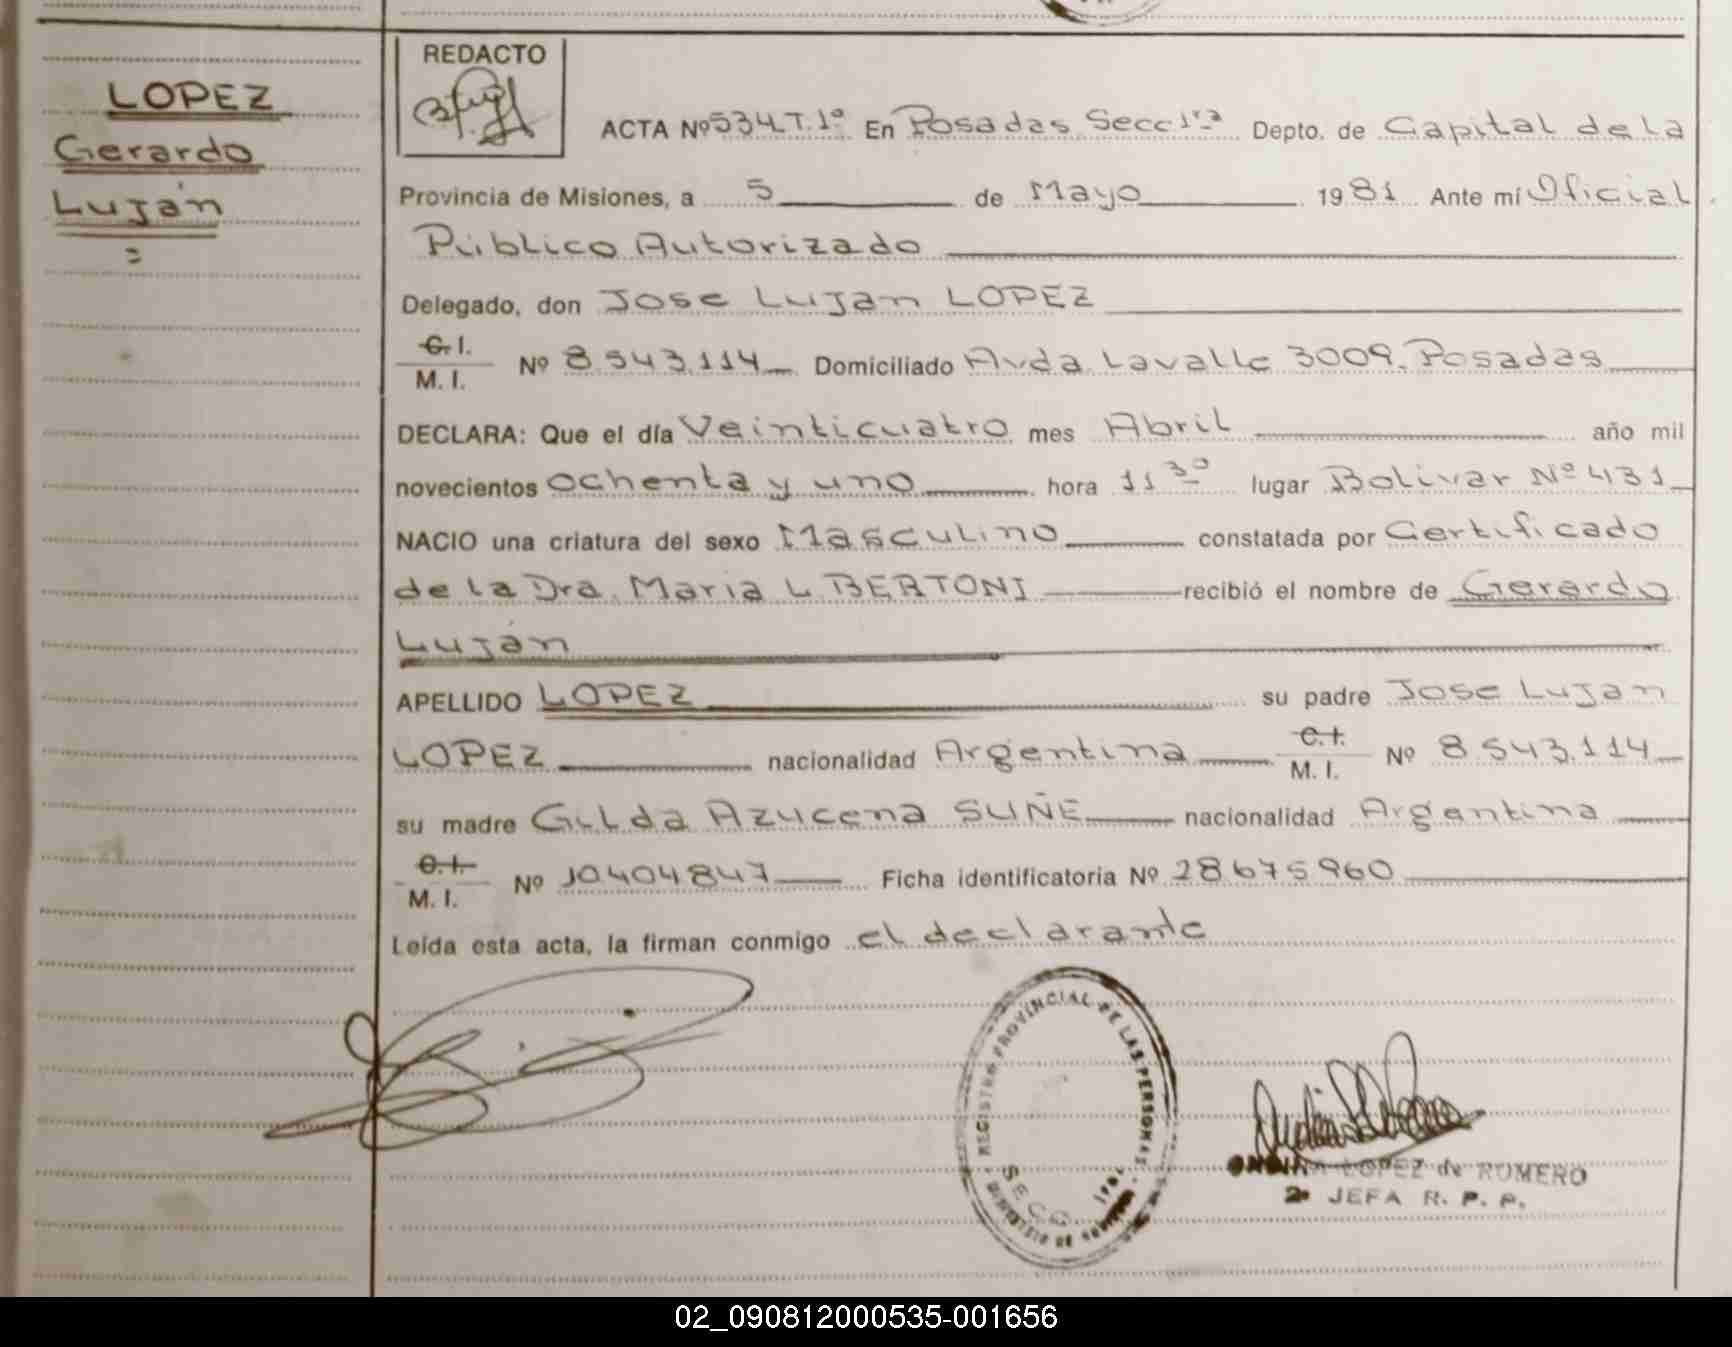 LOPEZ
Gerardo
Luján
REDACTO
ACTA Nº 534 T. 1º En Posadas Secc 1ra Depto. de Capital de la
Provincia de Misiones, a 5 de Mayo 1981 Ante mí Oficial
Público Autorizado
Delegado, don Jose Lujan LOPEZ
C. I.
M. I. Nº 8.543.114 Domiciliado Avda. Lavalle 3009. Posadas
DECLARA: Que el día Veinticuatro mes Abril año mil
novecientos ochenta y uno hora 11 30 lugar Bolivar Nº 431
NACIO una criatura del sexo Masculino constatada por Certificado
de la Dra. Maria L. BERTONI recibió el nombre de Gerardo
Luján
APELLIDO LOPEZ su padre Jose Lujan
LOPEZ nacionalidad Argentina C. I. M. I. Nº 8.543.114
su madre Gilda Azucena SUÑE nacionalidad Argentina
C. I.
M. I. Nº 10404847 Ficha identificatoria Nº 28675960
Leída esta acta, la firman conmigo el declarante
REGISTRO PROVINCIAL DE LAS PERSONAS
MINISTERIO DE
SECC
LOPEZ de ROMERO
2º JEFA R. P. P.
02_090812000535-001656